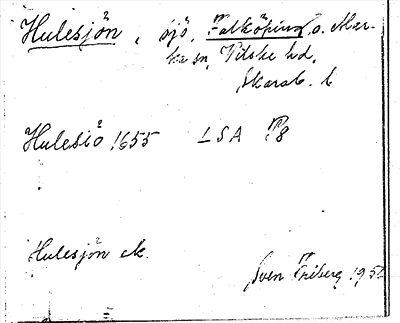 Hulesjön, sjö, Falköping o. Mar-
ka sn, Vilske hd,
Skarab. l
Hulesiö 1655 LSA P8
Hulesjön ek.
Sven Friberg 195